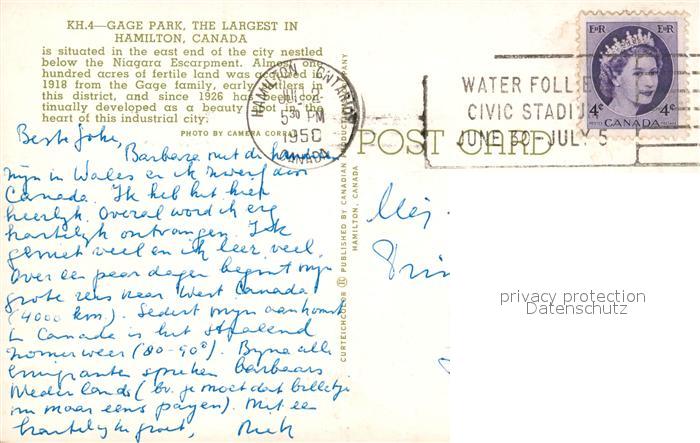 KH.4—GAGE PARK, THE LARGEST IN
HAMILTON, CANADA
is situated in the east end of the city nestled
below the Niagara Escarpment. Almost one
hundred acres of fertile land was acquired in
1918 from the Gage family, early settlers in
this district, and since 1926 has been con-
tinually developed as a beauty spot in the
heart of this industrial city.
PHOTO BY CAMERA
HAMILTON ONTARIO
5 30 PM
CANADA
WATER FOLLIE
CIVIC STADIU
JUNE 30-JULY 5
E II R E II R
4¢ 4¢
CANADA
POST CARD
CURTEICHCOLOR PUBLISHED BY CANADIAN PRODUCTS COMPANY
HAMILTON, CANADA
Beste Joke,
Barbara met de
in Wales en ik zwerf door
Canada. Ik heb het hier
heerlijk. Overal word ik erg
hartelijk ontvangen. Ik
geniet veel en ik leer veel.
Over een paar dagen begint mijn
grote reis naar West Canada
(4000 km.). Sedert mijn aankomst
in Canada is het stralend
zomerweer (80-90°). Bijna alle
emigranten spreken barbaars
Nederlands (bv. je moet dat billetje
nu maar eens payen). Met een
hartelijke groet,
Mej.
privacy protection
Datenschutz